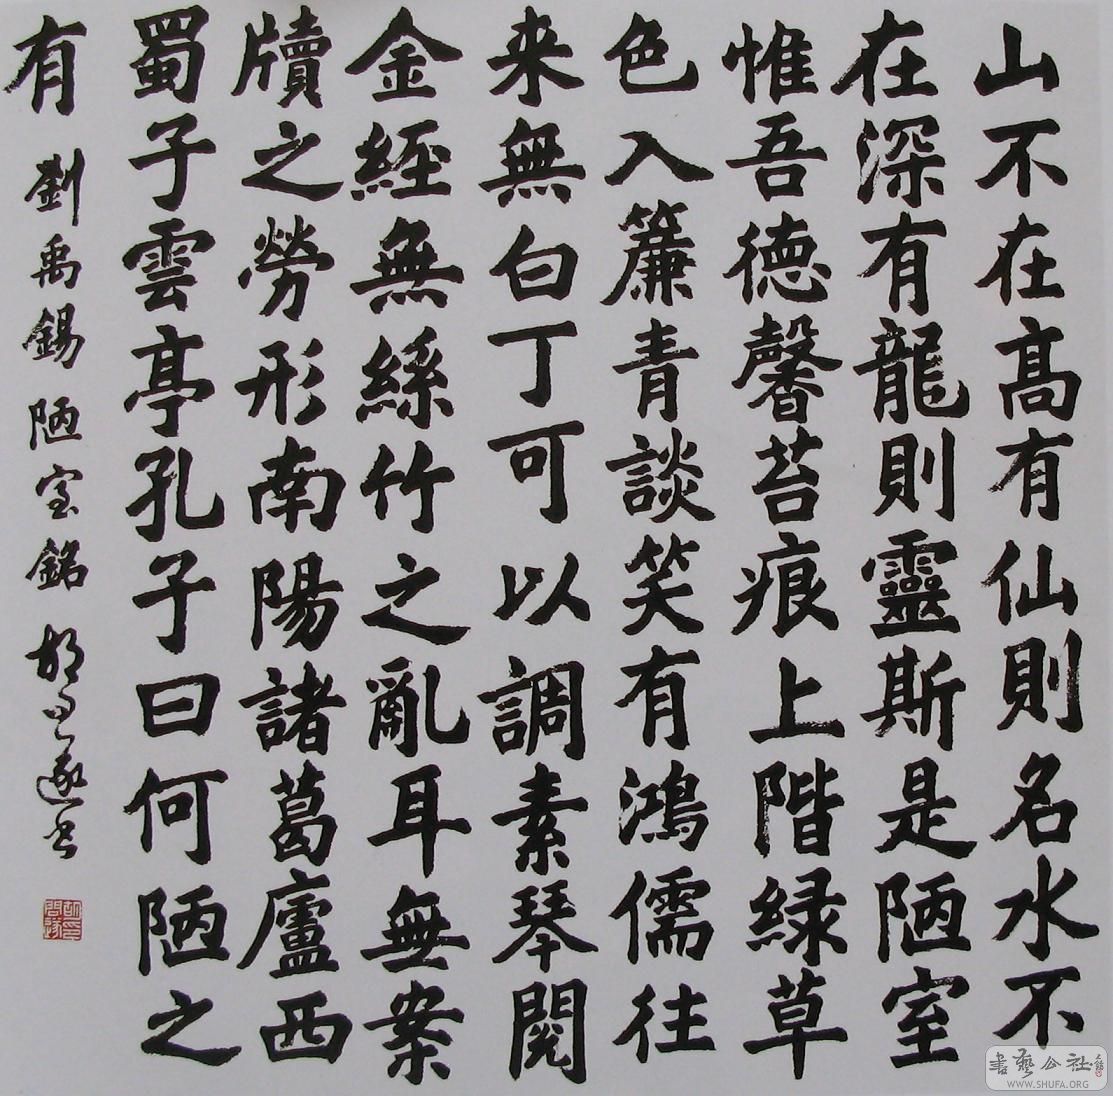 山不在髙有仙則名水不
在深有龍則靈斯是陋室
惟吾德馨苔痕上階緑草
色入簾青談笑有鴻儒往
来無白丁可以調素琴閱
金經無絲竹之亂耳無案
牘之勞形南陽諸葛廬西
蜀子雲亭孔子曰何陋之
有 劉禹錫陋室銘 胡问遂书
胡問遂印
書藝公社
WWW.SHUFA.ORG